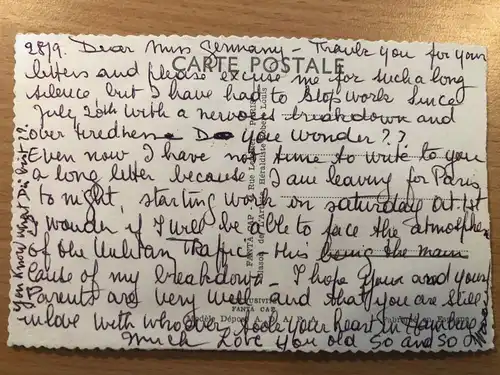 28/9. Dear Miss Germany - Thank you for your
CARTE POSTALE
letters and please excuse me for such a long
silence but I have had to stop work since
July 20th with a nervous breakdown and
over tiredness Do you wonder??
Even now I have no time to write to you
a long letter because I am leaving for Paris
to night, starting work on saturday at 1st
I wonder if I will be able to face the atmosphere
of the Traffic - this being the main
cause of my breakdown - I hope you and your
Parents are very well and that you are still
in love with whoever took your heart in Hambourg
Much Love you old So and So
you know
FANTA CAP
Modèle Déposé